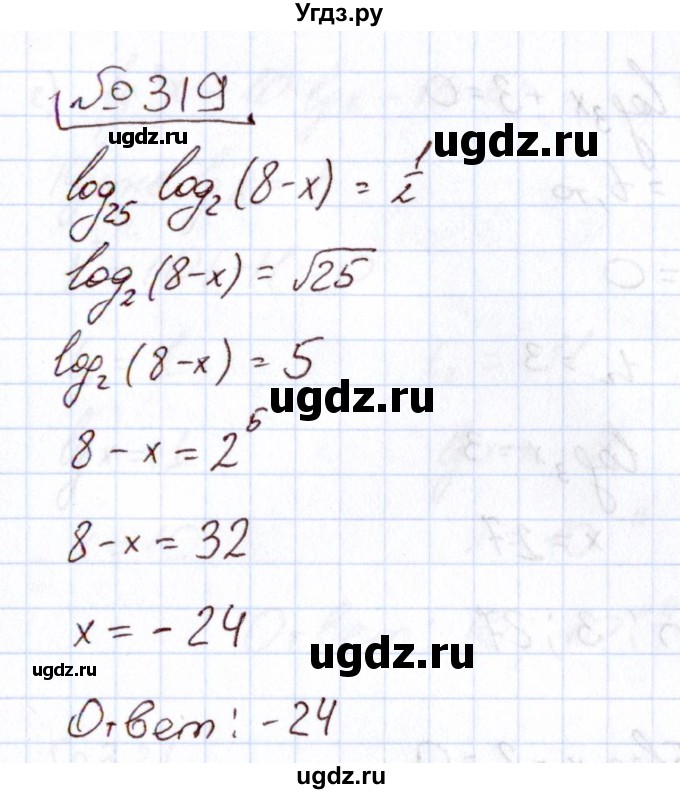 Угдз.ру
№ 319
ugdz.ru
ugdz.ru
log₂₅ log₂ (8-x) = 1/2
ugdz.ru
log₂ (8-x) = √25
log₂ (8-x) = 5
ugdz.ru
8 - x = 2⁵
8 - x = 32
x = - 24
ugdz.ru
ugdz.ru
Ответ: -24
ugdz.ru